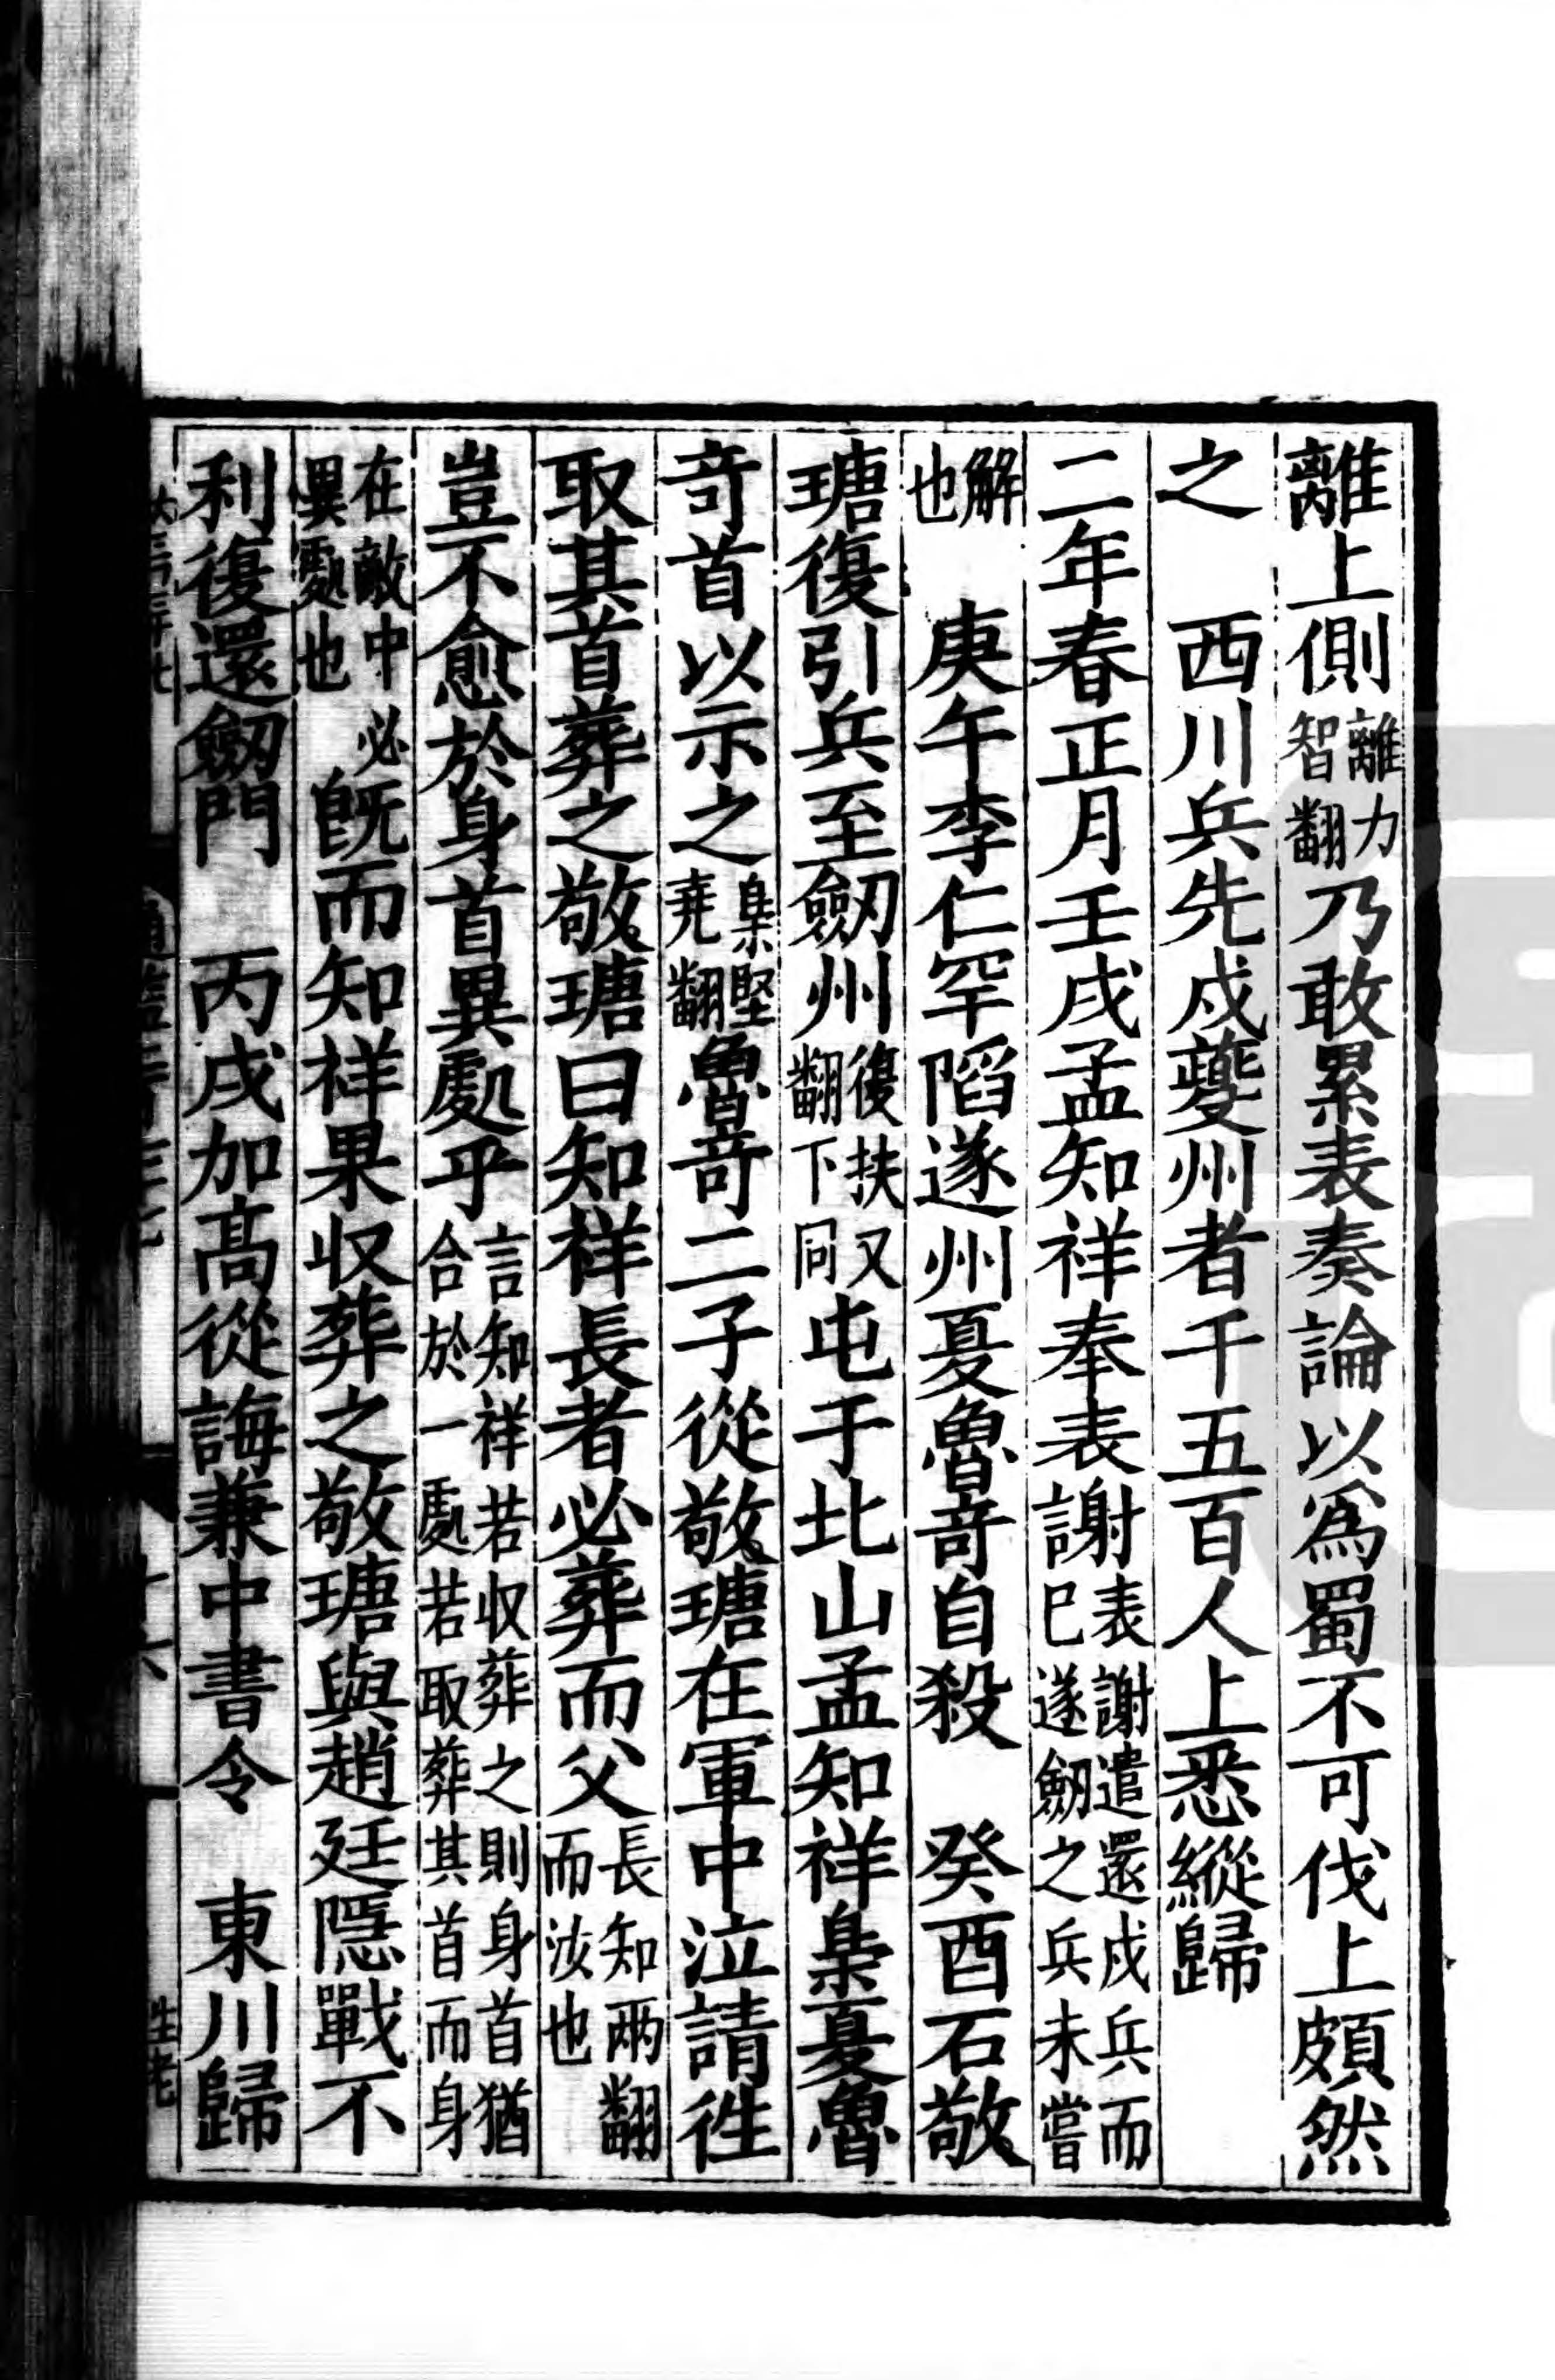 離上側離力智翻乃敢累表奏論以爲蜀不可伐上頗然
之　西川兵先戍夔州者千五百人上悉縱歸
二年春正月壬戌孟知祥奉表謝表謝遣還戍兵而已遂劒之兵未嘗
解也　庚午李仁罕陷遂州夏魯竒自殺　癸酉石敬
瑭復引兵至劒州復扶又翻下同屯于北山孟知祥梟夏魯
竒首以示之梟堅堯翻魯竒二子從敬瑭在軍中泣請往
取其首葬之敬瑭曰知祥長者必葬而父長知兩翻而汝也
豈不愈於身首異處乎言知祥若収葬之則身首猶合於一處若取葬其首而身
在敵中必異處也既而知祥果収葬之敬瑭與趙廷隱戰不
利復還劒門　丙戌加高從誨兼中書令　東川歸